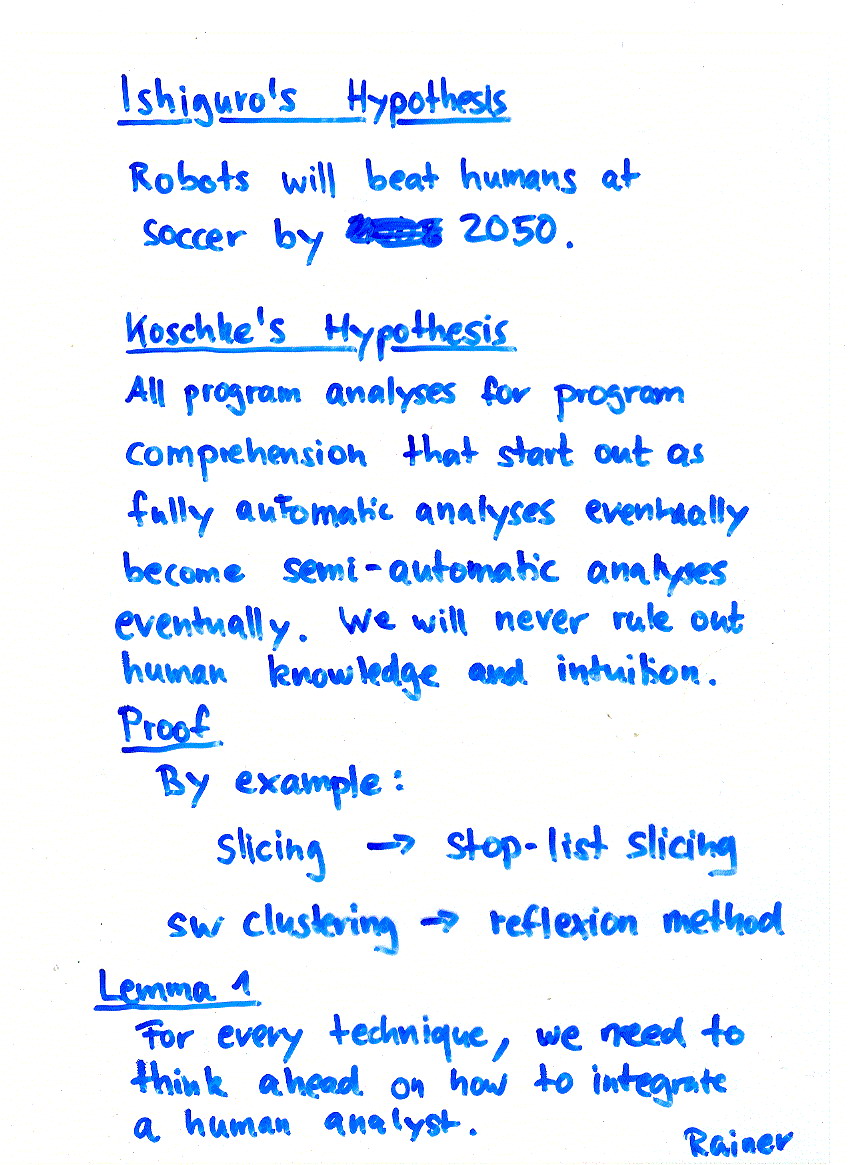 Ishiguro's Hypothesis
Robots will beat humans at
soccer by 2050.
Koschke's Hypothesis
All program analyses for program
comprehension that start out as
fully automatic analyses eventually
become semi-automatic analyses
eventually. We will never rule out
human knowledge and intuition.
Proof
By example:
slicing → stop-list slicing
sw clustering → reflexion method
Lemma 1
For every technique, we need to
think ahead on how to integrate
a human analyst.
Rainer